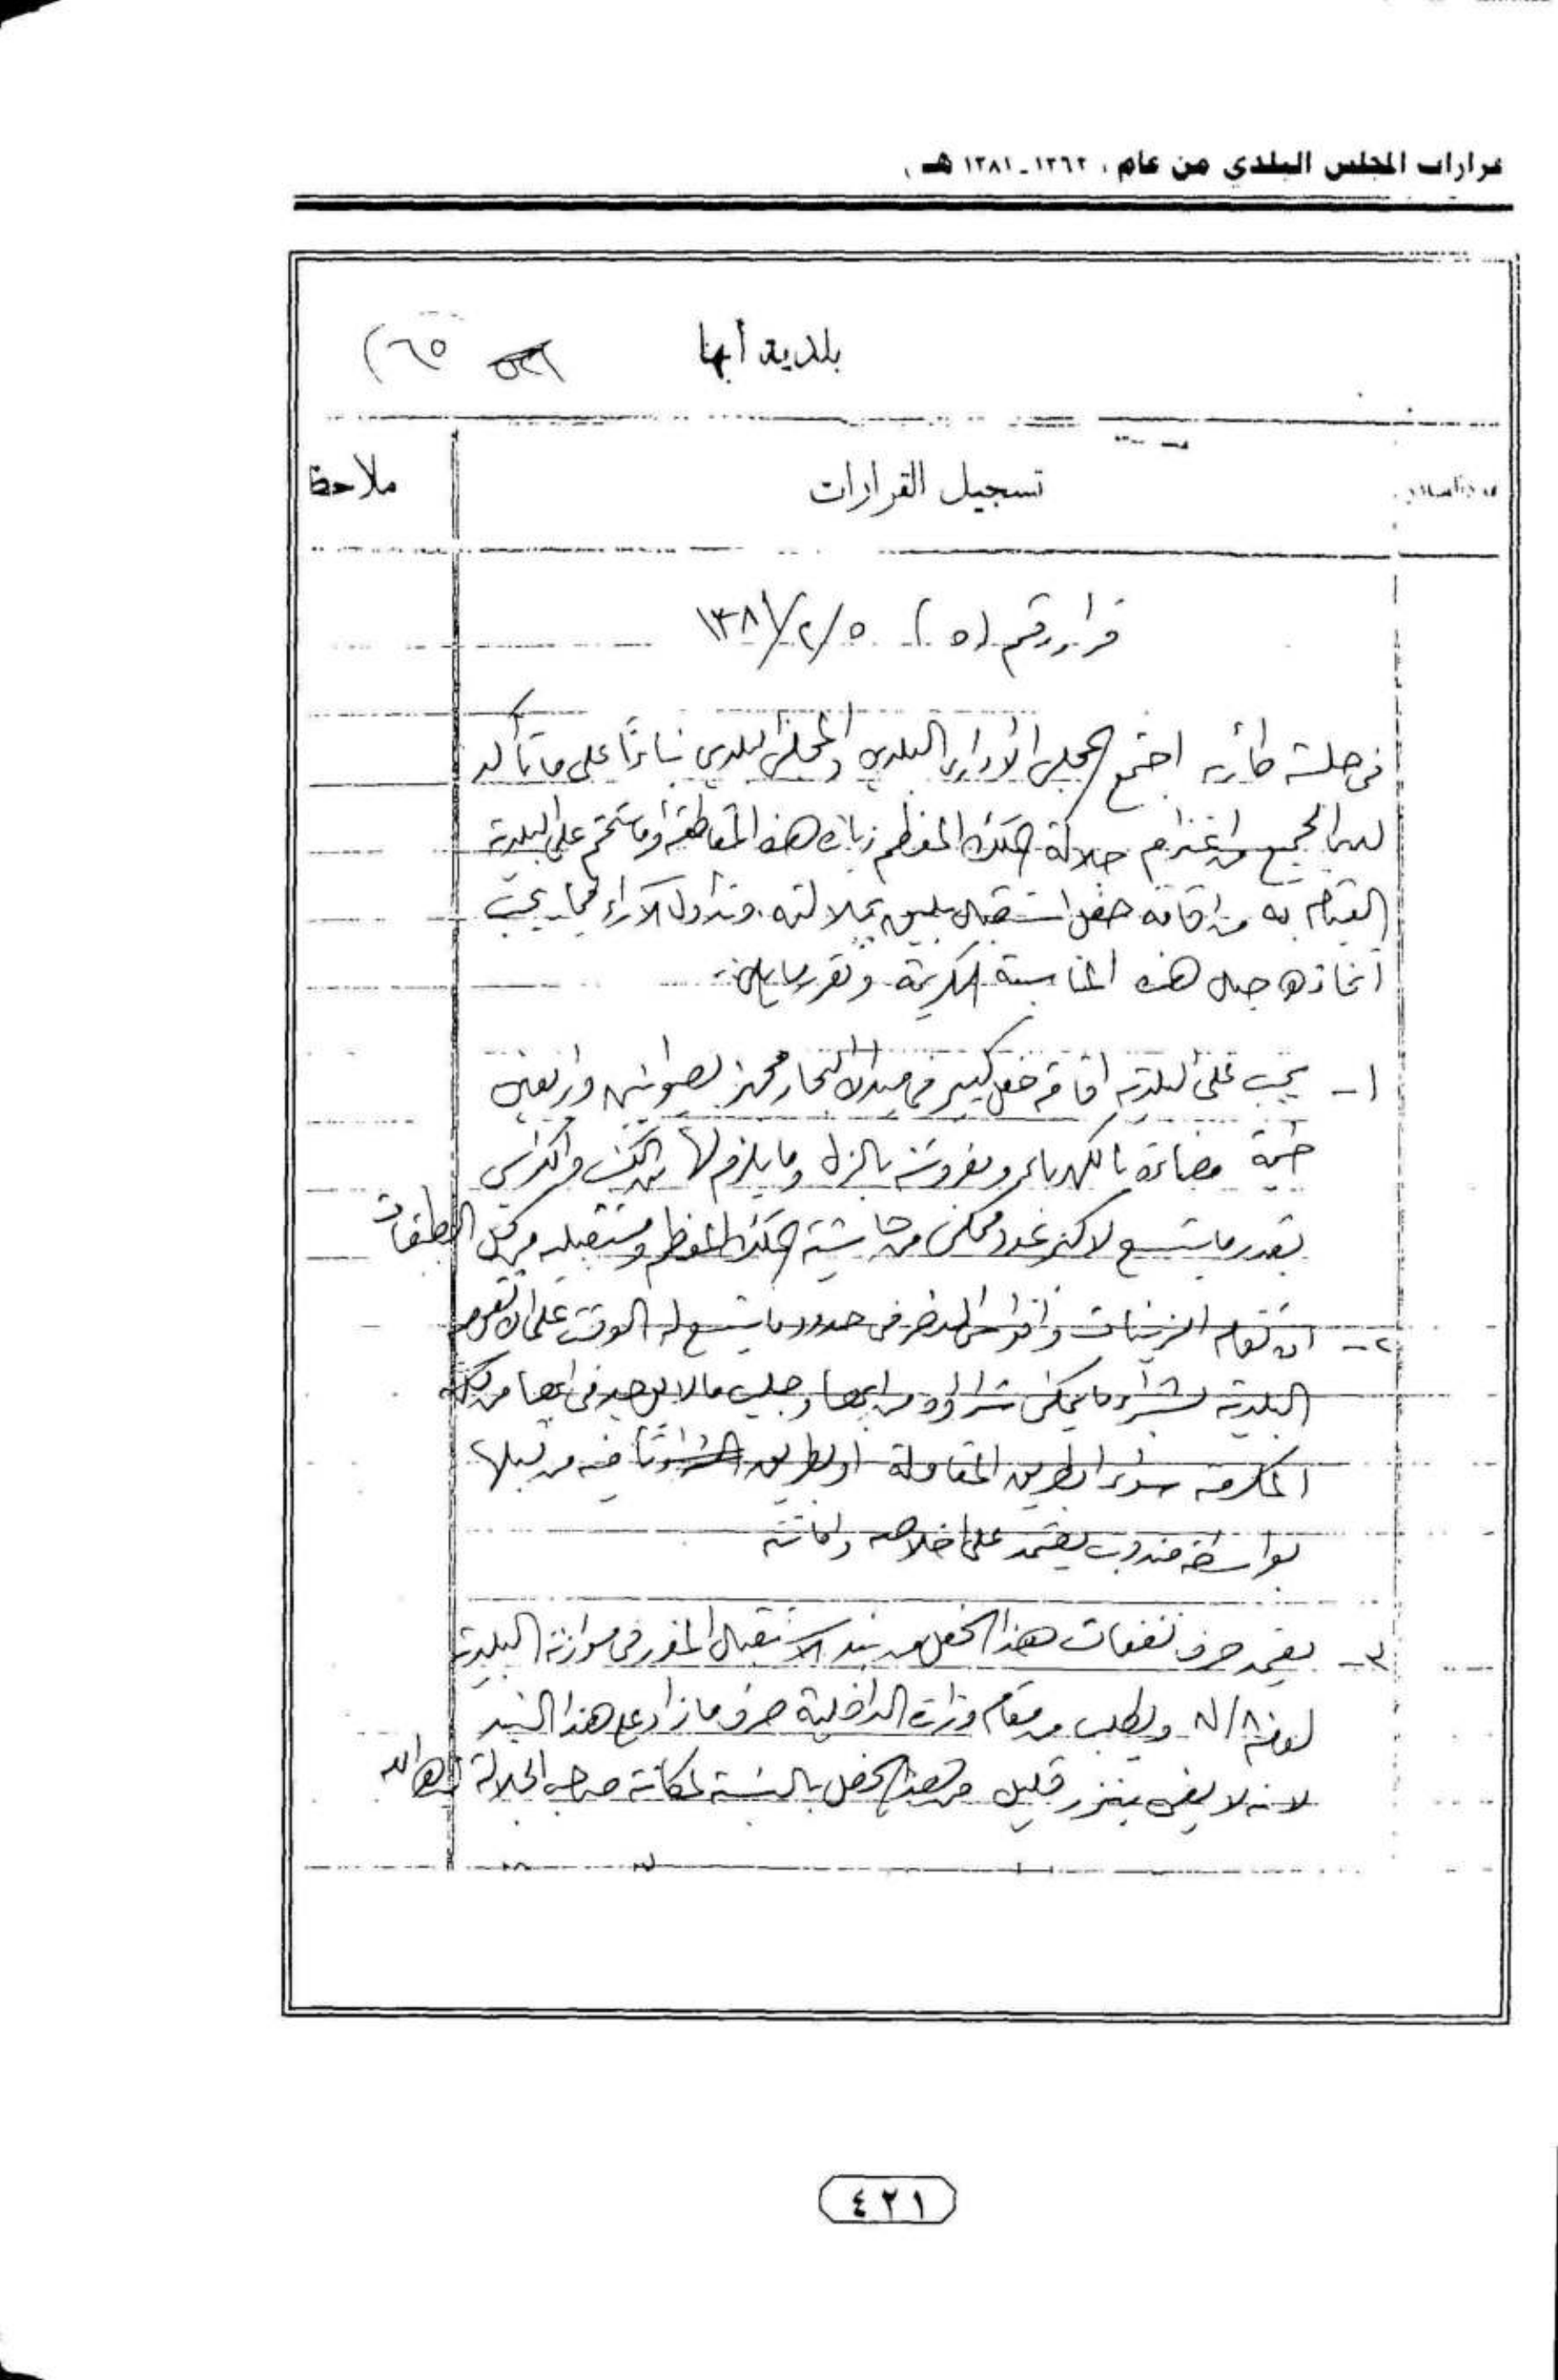 قرارات المجلس البلدي من عام ، ١٣٦٢ - ١٣٨١ هـ ،
بلدية أبها ٦٥)
تسجيل القرارات ملاحظا
قرار رقم (٥) ٥/٢/١٣٨١
في جلسة طارئه اجتمع المجلس الأداري البلدي والمجلس البلدي بناءًا على ما تأكد
لدى الجميع من اعتزام جلالة الملك المعظم زيارة هذه المقاطعة وما يتحتم على البلدية
القيام به من اقامة حفل استقبال يليق بجلالته وتداول الآراء فيما يجب
أتخاذه حيال هذه المناسبة الكريمة وتقرر ما يلي:
١- يجب على البلديه اقامة حفل كبير في ميدان البحار مجهز بصوانين واربعين
خيمة مضاءة بالكهرباء ومفروشة بالزل وما يلزم لها من الكنب والكراسي
بقدر ما يتسع لاكبر عدد ممكن من حاشية الملك المعظم ومستقبليه من كل الطبقات
٢- ان تقام الزينات واقواس النصر في حدود ما يتسع له الوقت على ان تقوم
البلدية بشراء ما يمكن شراؤه من ابها وجلب مالا يوجد في ابها من مكه
المكرمه سواء بطريق المقاولة او بطريق من قبلها
بواسطة مندوب يعتمد على اخلاصه وامانته
٣- يعتمد صرف نفقات هذا الحفل من بند الاستقبال المقرر في موازنة البلدية
لسنة ٨١/٨٠ ويطلب من مقام وزارة الداخلية صرف ما زاد على هذا البند
لانه لا يفي بنزر قليل من هذا الحفل بالنسبة لمكانة صاحب الجلالة
٤٢١